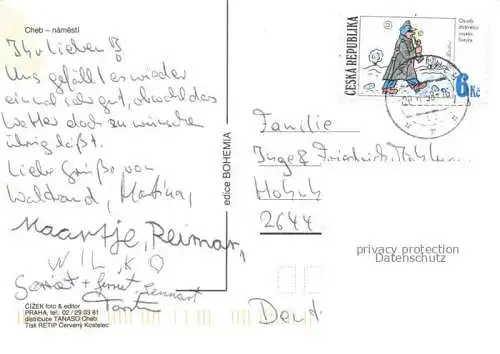 Cheb – náměstí
Ihr Lieben!
Uns gefällt es wieder
einmal sehr gut, obwohl das
Wetter doch zu wünschen
übrig läßt.
Liebe Grüße von
Waltraud, Martina,
Maartje, Reimar,
WILKO
Gernot + Lennart
Torsten
ČÍŽEK foto & editor
PRAHA, tel.: 02 / 29 03 81
distribuce TANASO Cheb
Tisk RETIP Červený Kostelec
edice BOHEMIA
ČESKÁ REPUBLIKA
6 Kč
Familie
Inge & Friedrich
2644
privacy protection
Datenschutz